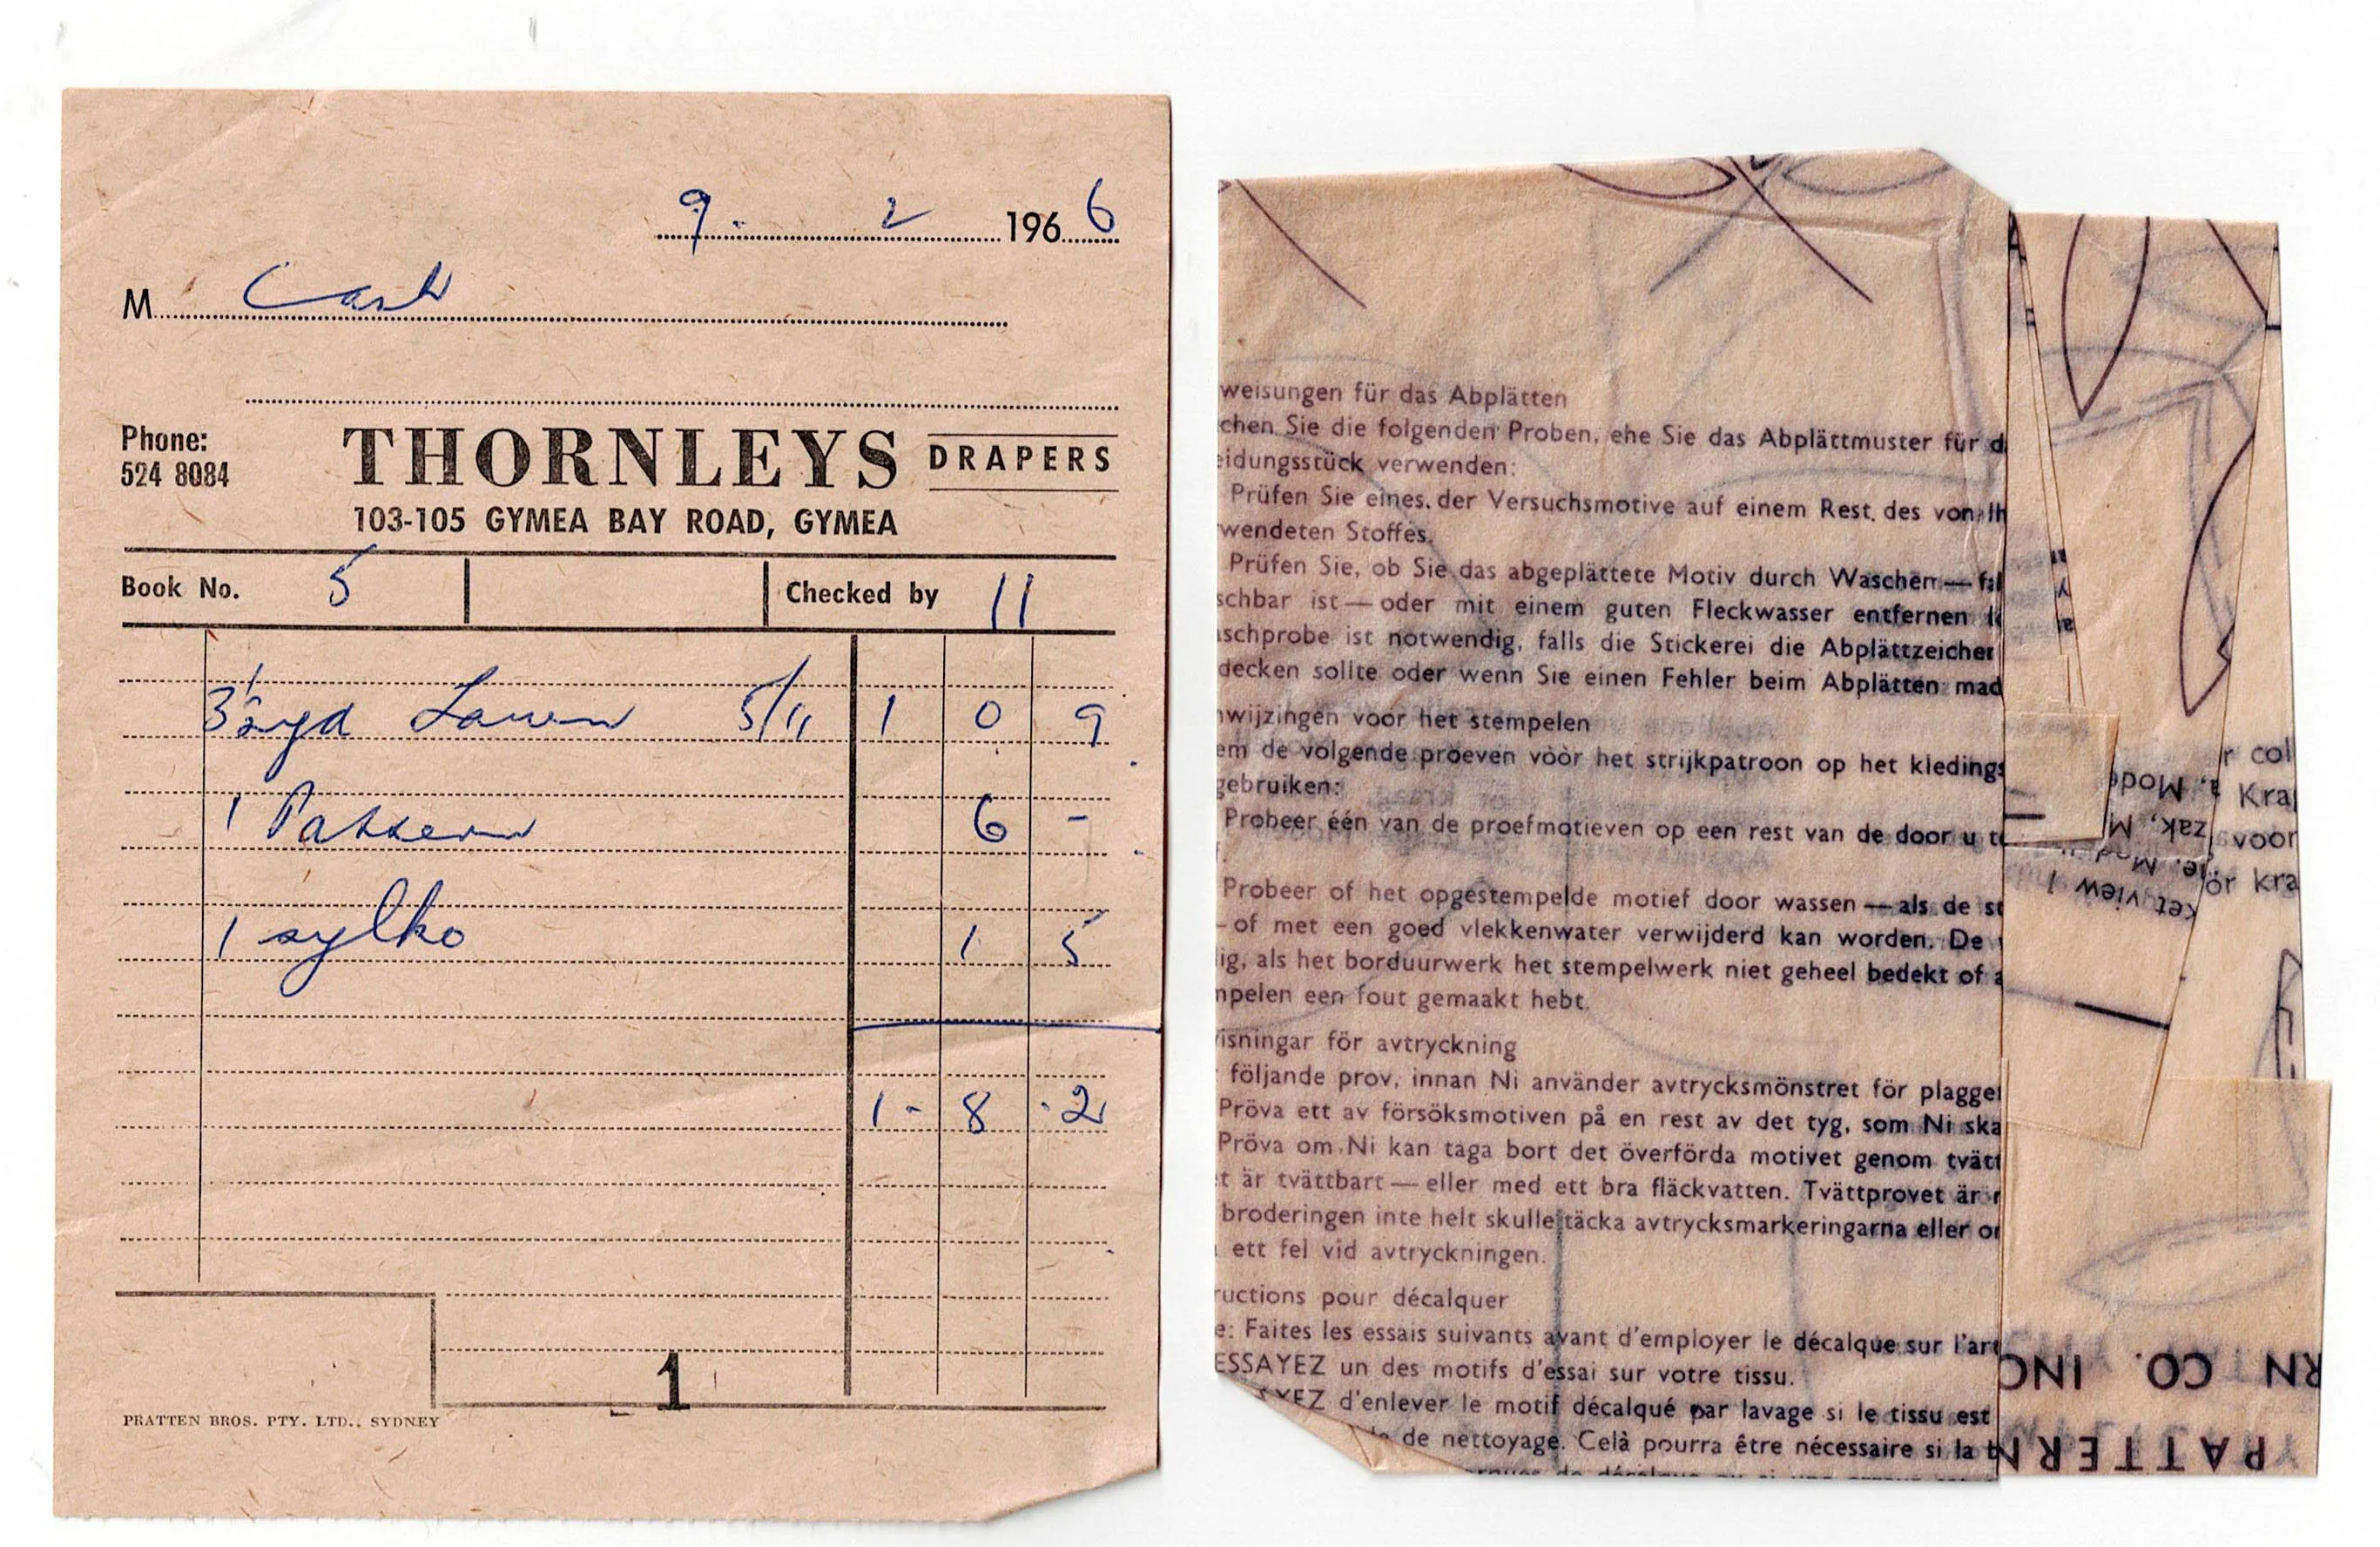 9. 2 1966
M Cash
Phone:
524 8084
THORNLEYS DRAPERS
103-105 GYMEA BAY ROAD, GYMEA
Book No. 5 Checked by 11
3½ yd Lawn 5/11 1 0 9
1 Pattern 6 -
1 sylko 1 5
1 - 8 - 2
1
PRATTEN BROS. PTY. LTD., SYDNEY
weisungen für das Abplätten
chen Sie die folgenden Proben, ehe Sie das Abplättmuster für d
eidungsstück verwenden:
Prüfen Sie eines. der Versuchsmotive auf einem Rest. des von Ih
wendeten Stoffes.
Prüfen Sie, ob Sie das abgeplättete Motiv durch Waschen — fal
schbar ist — oder mit einem guten Fleckwasser entfernen l
schprobe ist notwendig, falls die Stickerei die Abplättzeicher
decken sollte oder wenn Sie einen Fehler beim Abplätten mad
wijzingen voor het stempelen
em de volgende proeven vòòr het strijkpatroon op het kledings
gebruiken:
Probeer één van de proefmotieven op een rest van de door u te
Probeer of het opgestempelde motief door wassen — als de st
- of met een goed vlekkenwater verwijderd kan worden. De
ig, als het borduurwerk het stempelwerk niet geheel bedekt of a
mpelen een fout gemaakt hebt.
isningar för avtryckning
följande prov, innan Ni använder avtrycksmönstret för plagget
Pröva ett av försöksmotiven på en rest av det tyg, som Ni ska
Pröva om Ni kan taga bort det överförda motivet genom tvätt
t är tvättbart — eller med ett bra fläckvatten. Tvättprovet är
broderingen inte helt skulle täcka avtrycksmarkeringarna eller or
ett fel vid avtryckningen.
ructions pour décalquer
e: Faites les essais suivants avant d'employer le décalque sur l'art
ESSAYEZ un des motifs d'essai sur votre tissu.
YEZ d'enlever le motif décalqué par lavage si le tissu est
de nettoyage. Celà pourra être nécessaire si la b
r col
Kra
voor
ör kra
, Mod
zak, M
ket view 1
RN CO. INC
PATTERN